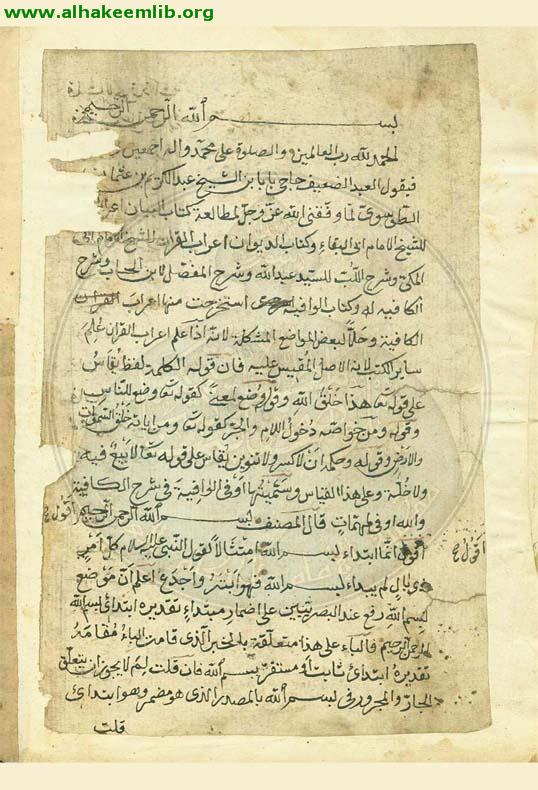 www.alhakeemlib.org
بسم الله الرحمن الرحيم
الحمد لله رب العالمين والصلوة على محمد واله اجمعين
فيقول العبد الضعيف حاجي بابا بن الشيخ عبد الكريم بن عثمان
الطوسوى لما وفقنى الله عز وجل لمطالعة كتاب البيان اعراب
للشيخ الامام ابى البقاء وكتاب الديوان اعراب القران للشيخ الامام ابى
المكى وشرح اللب للسيد عبد الله وشرح المفصل لابن الحاجب وشرح
الكافيه له وكتاب الوافية استخرجت منها اعراب القران
الكافية وحلا لبعض المواضع المشكلة لانه اذا علم اعراب القران علم
ساير الكتب لانه الاصل المقيس عليه فان قوله الكلمة لفظ يقاس
على قوله تعا هذا خلق الله وقوله وضع لمعنى كقوله تعا وضع للناس
وقوله ومن خواصه دخول اللام والجر كقوله تعا ومن اياته خلق السموات
والارض وقوله وحكمه ان لا كسر ولا تنوين يقاس على قوله تعا لا بيع فيه
ولا خلة وعلى هذا القياس وسميتها اوفى الوافية فى شرح الكافية
والله اوفى لمهمات قال المصنف بسم الله الرحمن الرحيم اقول ح
اقول انما ابتداء ببسم الله امتثالا لقول النبى عليه السلام كل امر
ذى بال لم يبداء ببسم الله فهو ابتر واجذع اعلم ان موضع
بسم الله رفع عند البصريين على اضمار مبتداء تقديره ابتدائ بسم الله
الرحمن الرحيم فالباء على هذا متعلقة بالخبر الذى قامت الباء مقامه
تقديره ابتدائ ثابت او مستقر ببسم الله فان قلت لم لا يجوز ان يتعلق
الجار والمجرور فى بسم الله بالمصدر الذى هو مضمر وهو ابتدائ
قلت
اقول ح